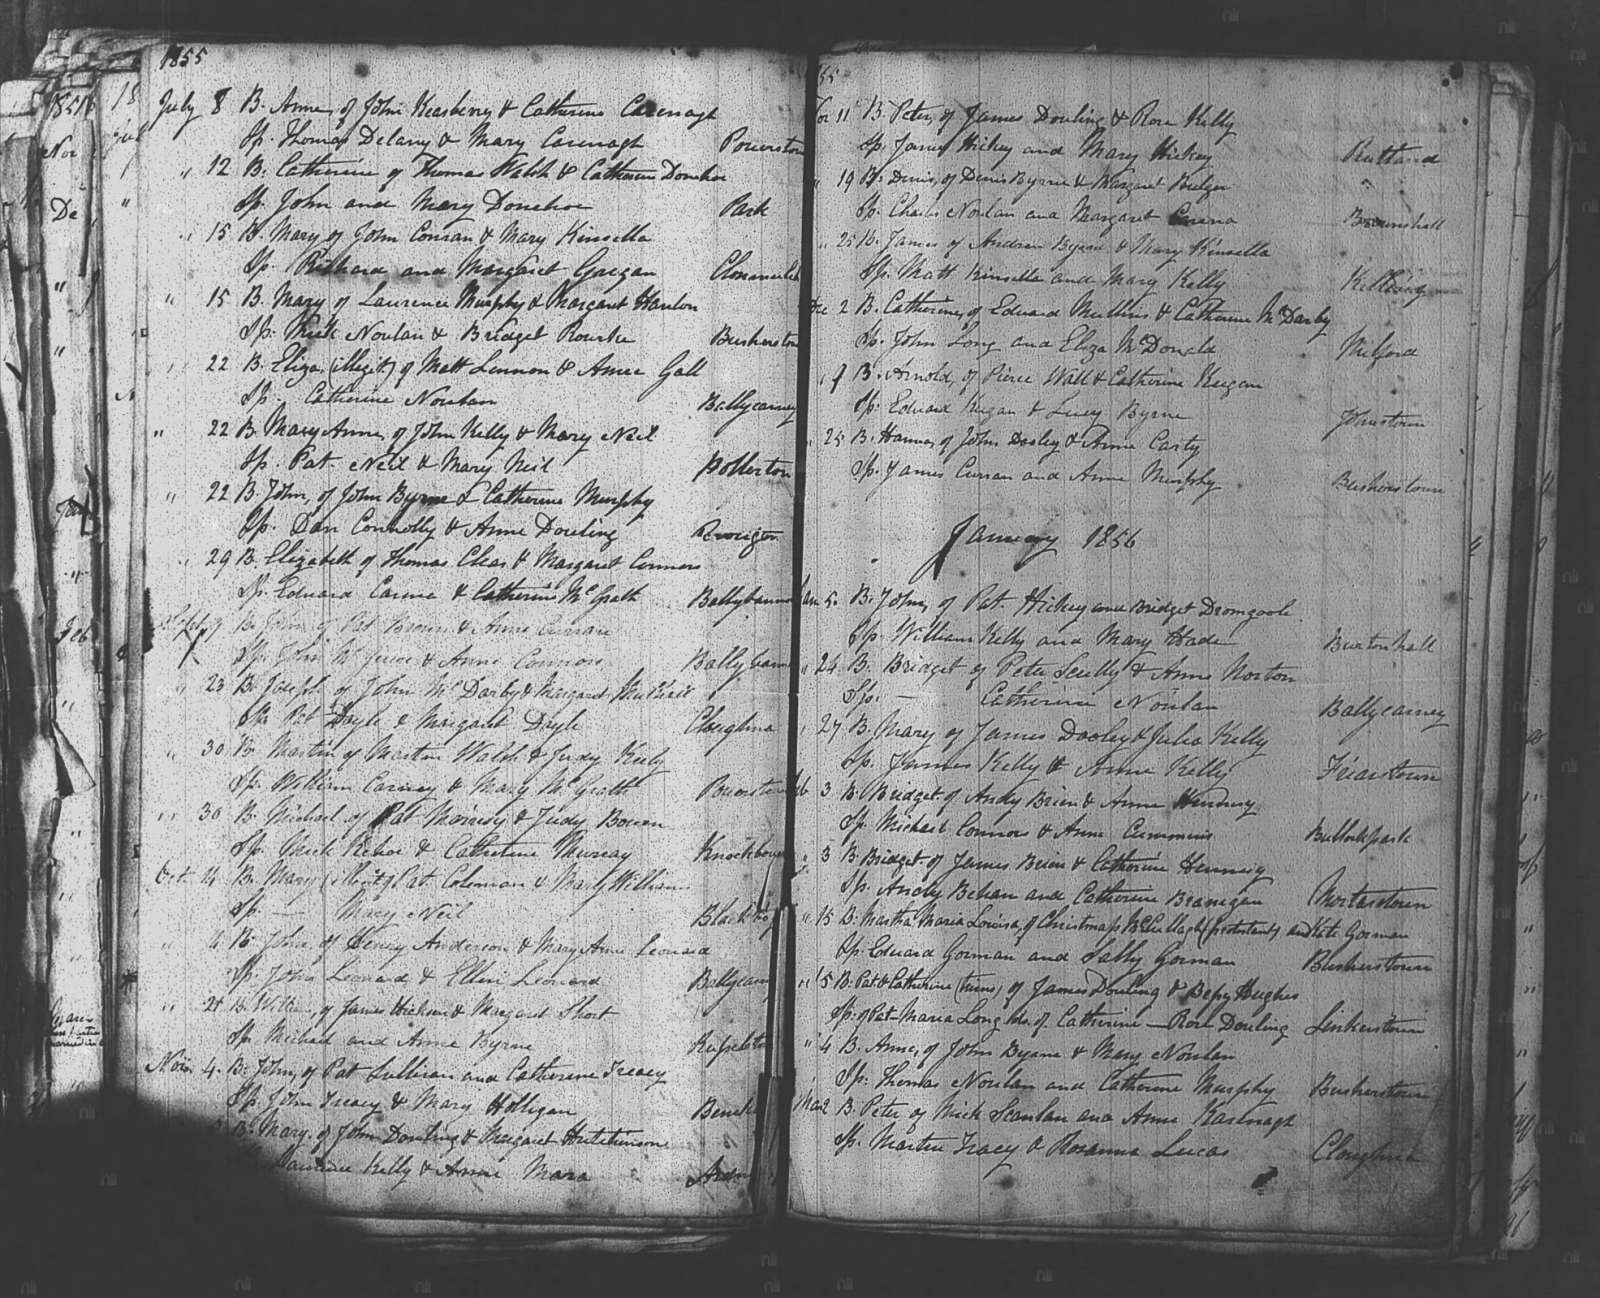 1855
July 8 B. Anne, of John Keasberry & Catherine Cavenagh
Sp. Thomas Delany & Mary Cavenagh Powerstown
" 12 B. Catherine of Thomas Walsh & Catherine Donohoe
Sp. John and Mary Donohoe Park
" 15 B. Mary of John Conran & Mary Kinsella
Sp. Richard and Margaret Gorgan
" 15 B. Mary of Laurence Murphy & Margaret Hanlon
Sp. Mick Noulan & Bridget Rourke Busherstown
" 22 B. Eliza, (illegit) of Matt Lennon & Anne Gall
Sp. Catherine Noulan Ballycarney
" 22 B. Mary Anne, of John Kelly & Mary Neil
Sp. Pat. Neil & Mary Neil Pollerton
" 22 B. John, of John Byrne & Catherine Murphy
Sp. Dan Connolly & Anne Douling
" 29 B. Elizabeth of Thomas Cleas & Margaret Connors
Sp. Edward Carine & Catherine McGrath
Sept. 9 B. John of Pat Brown & Anne Curran
Sp. John & Anne Connors
" 23 B. Joseph of John McDarby & Margaret
Sp. Pat Doyle & Margaret Doyle Cloughna
" 30 B. Martin of Martin Walsh & Judy Kiely
Sp. William Carney & Mary McGrath
" 30 B. Michael of Pat Morrisy & Judy Bowen
Sp. Mick Kehoe & Catherine Murray
Oct. 14 B. Mary (illegit) of Pat. Coleman & Mary Williams
Sp. — Mary Neil Blackbog
" B. John, of Henry Anderson & Mary Anne Leonard
Sp. John Leonard & Ellen Leonard Ballycarney
" 21 B. William, of James Hickson & Margaret Short
Sp. Michael and Anne Byrne
Nov. 4. B. John, of Pat Sullivan and Catherine Treacy
Sp. John Treacy & Mary Holligan
B. Mary, of John Douling & Margaret Hutchinson
Laurence Kelly & Anne Mara
55
Nov 11 B. Peter, of James Douling & Rose Kelly
Sp. James Hickey and Mary Hickey Rutland
" 19 B. Denis, of Denis Byrne & Margaret Bulger
Sp. Charles Noulan and Margaret Browneshill
" 25 B. James of Andrew Byrne & Mary Kinsella
Sp. Matt Kinsella and Mary Kelly
Dec 2 B. Catherine, of Edward Mullins & Catherine McDarby
Sp. John Long and Eliza McDonald Milford
" 9 B. Arnold, of Pierce Wall & Catherine Keegan
Sp. Edward Keegan & Lucy Byrne Johnstown
" 25 B. Hanna, of John Dooley & Anne Carty
Sp. James Curran and Anne Murphy Busherstown
January 1856
Jan 5. B. John, of Pat. Hickey and Bridget Dromgoole
Sp. William Kelly and Mary Hade Burtonhall
" 24 B. Bridget of Peter Scully & Anne Norton
Sp. — Catherine Noulan Ballycarney
" 27 B. Mary of James Dooley & Julia Kelly
Sp. James Kelly & Anne Kelly Friarstown
Feb 3 B. Bridget. of Andy Brien & Anne Hennesy
Sp. Michael Connors & Anne Cummins Bullockpark
" 3 B. Bridget of James Brien & Catherine Hennesy
Sp. Andy Behan and Catherine Branigan Mortarstown
" 15 B. Martha Maria Louisa, of Christmass McCullagh (protestant) and Kate Gorman
Sp. Edward Gorman and Sally Gorman Busherstown
" 15 B. Pat. & Catherine (twins) of James Douling & Bessy Hughes
Sp. of Pat—Maria Long do. of Catherine—Rose Douling Linkerstown
" 4 B. Anne, of John Byrne & Mary Noulan
Sp. Thomas Noulan and Catherine Murphy Busherstown
Mar 2 B. Peter of Mick Scanlan and Anne Kavenagh
Sp. Martin Tracy & Rosanna Lucas Cloughna